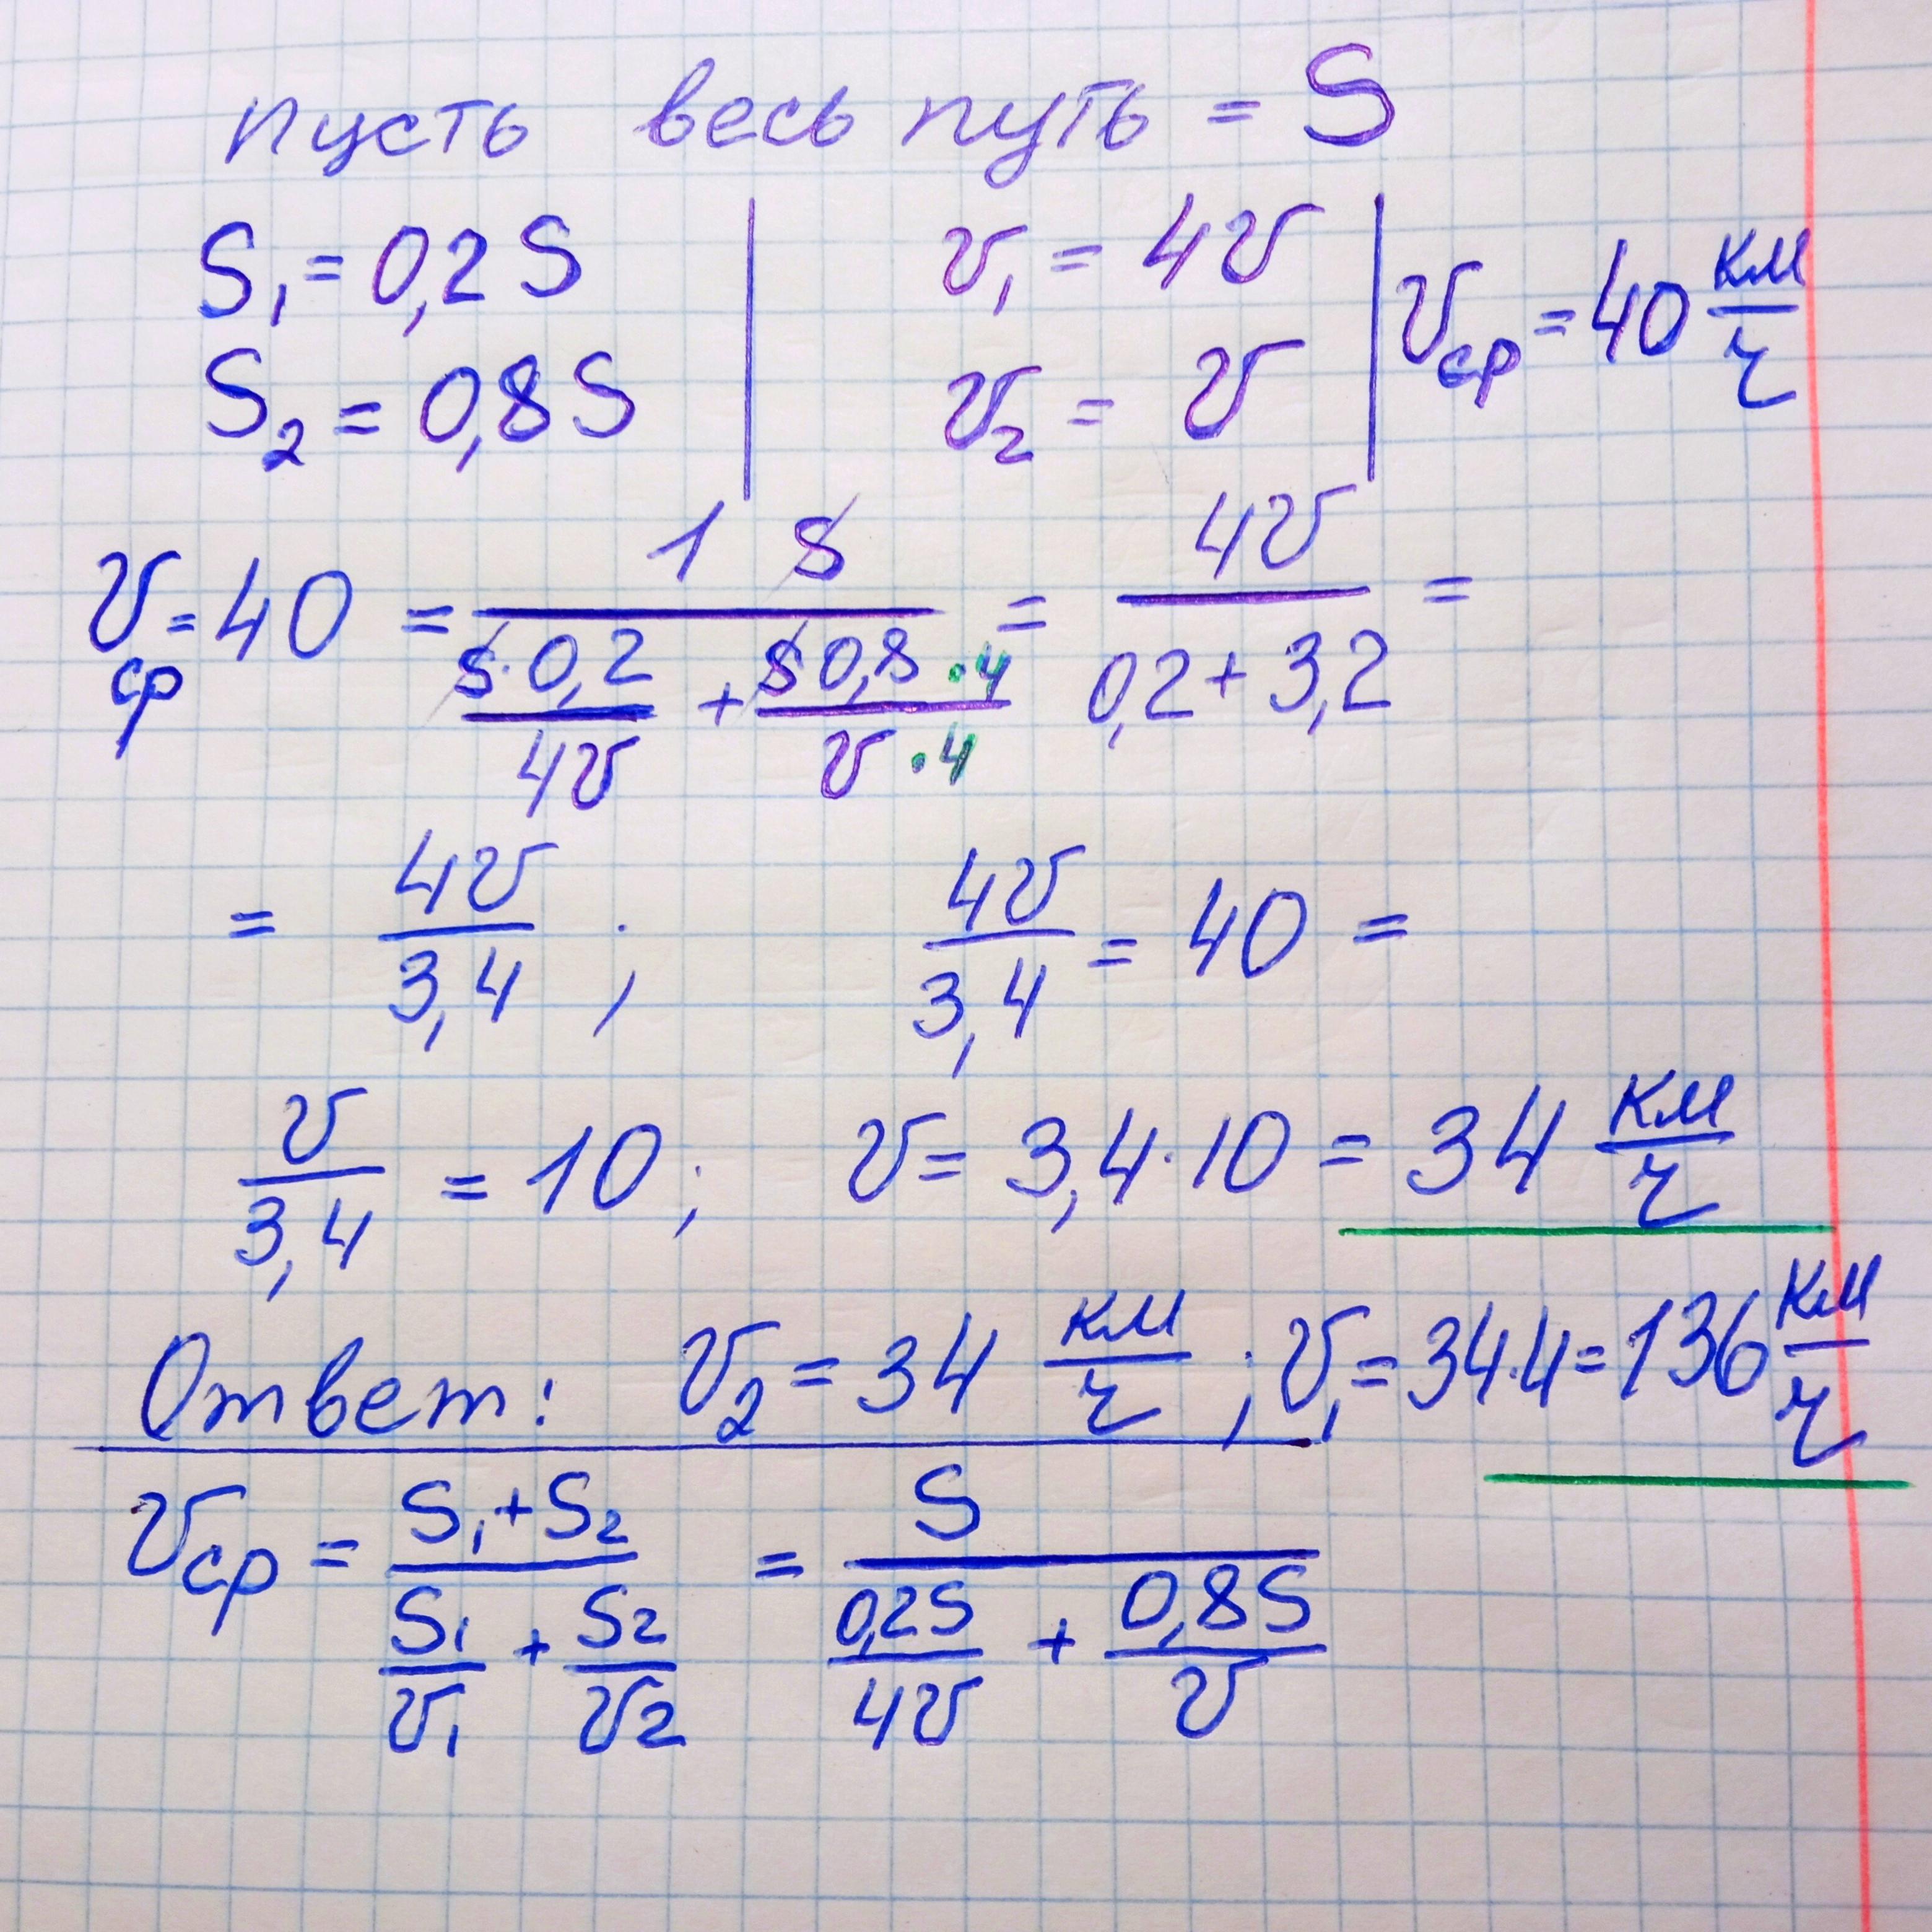 пусть весь путь = S
S₁ = 0,2 S | v₁ = 4v | vср = 40 км/ч
S₂ = 0,8 S | v₂ = v |
vср = 40 = 1 S / (S·0,2/4v + S 0,8 ·4/v ·4) = 4v / (0,2 + 3,2) =
= 4v/3,4 ; 4v/3,4 = 40 =
v/3,4 = 10 ; v = 3,4 · 10 = 34 км/ч
Ответ: v₂ = 34 км/ч ; v₁ = 34·4 = 136 км/ч
vср = (S₁ + S₂) / (S₁/v₁ + S₂/v₂) = S / (0,2S/4v + 0,8S/v)